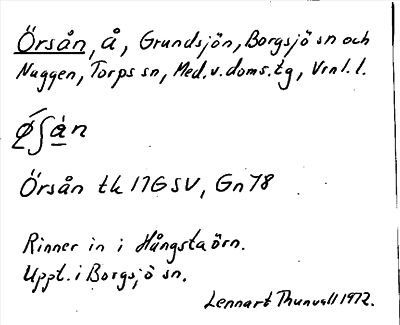 Örsån, å, Grundsjön, Borgsjö sn och
Naggen, Torps sn, Med. v. doms. tg, Vrnl. l.
ǿʃàn
Örsån tk 17G SV, Gn 78
Rinner in i Hångstaörn.
Uppt. i Borgsjö sn.
Lennart Thunvall 1972.